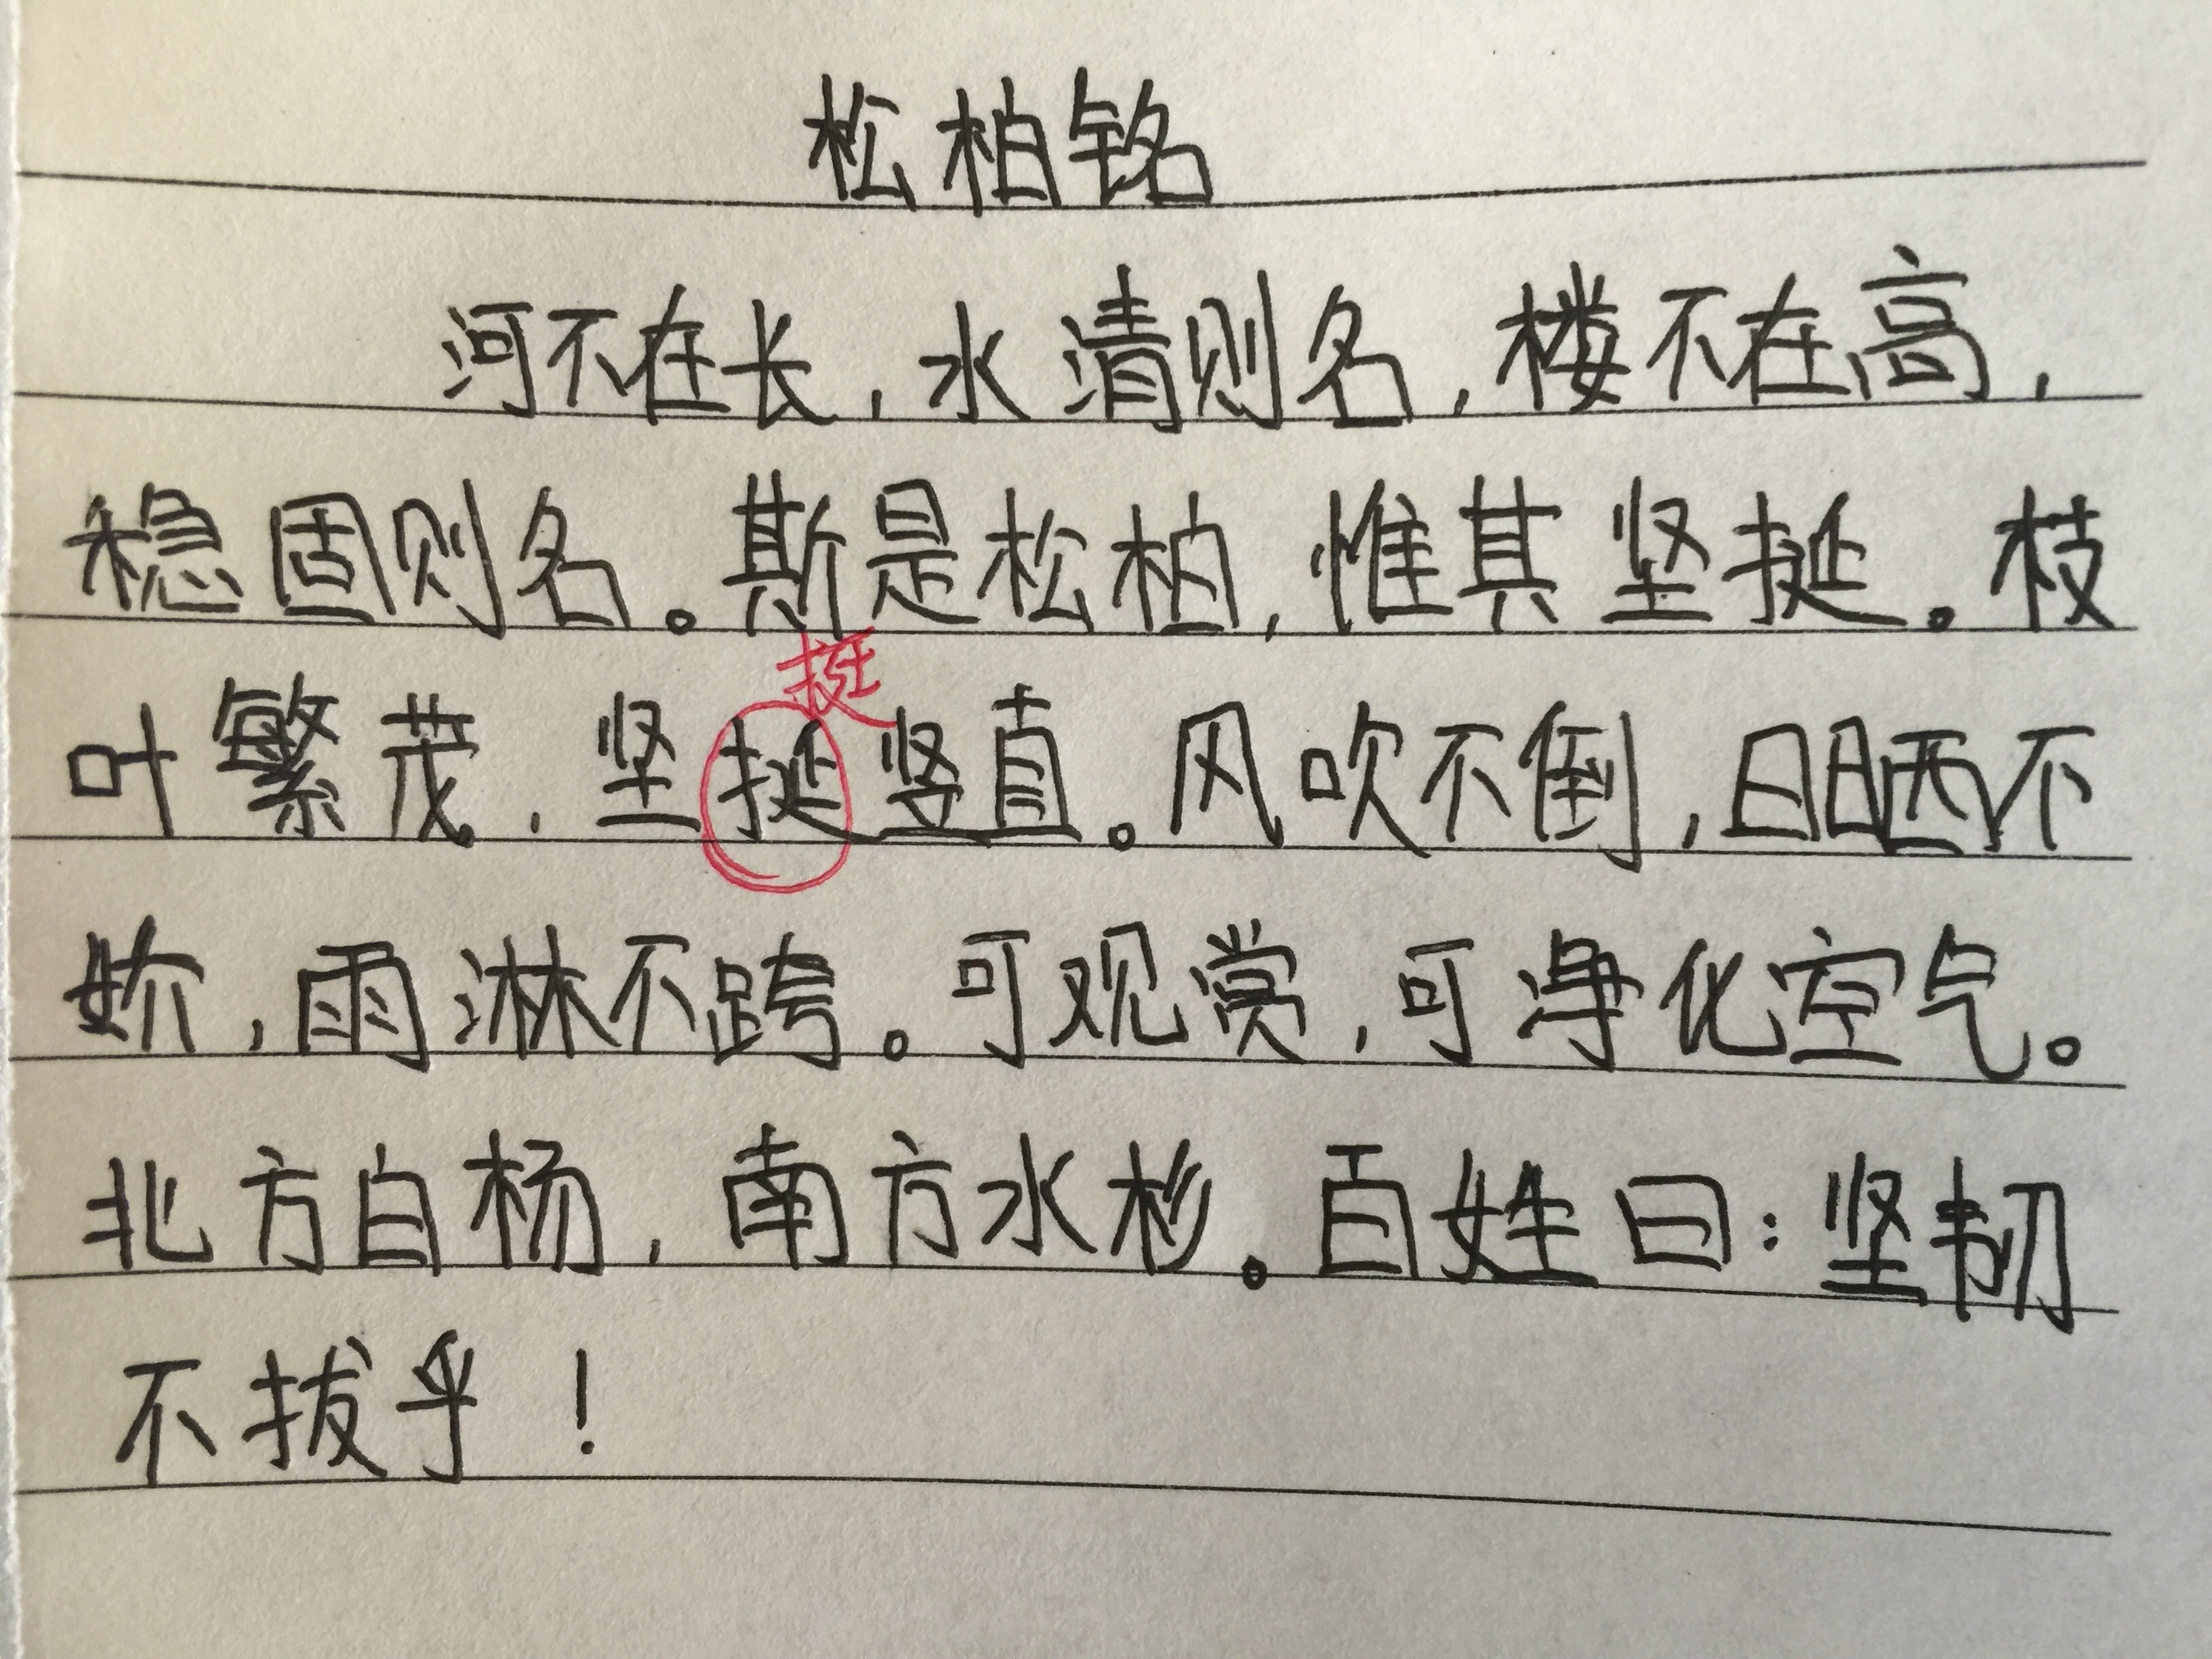 松柏铭
河不在长,水清则名,楼不在高,
稳固则名。斯是松柏,惟其坚挺。枝
挺
叶繁茂,坚挺竖直。风吹不倒,日晒不
妎,雨淋不跨。可观赏,可净化空气。
北方白杨,南方水杉。百姓曰:坚韧
不拔乎!